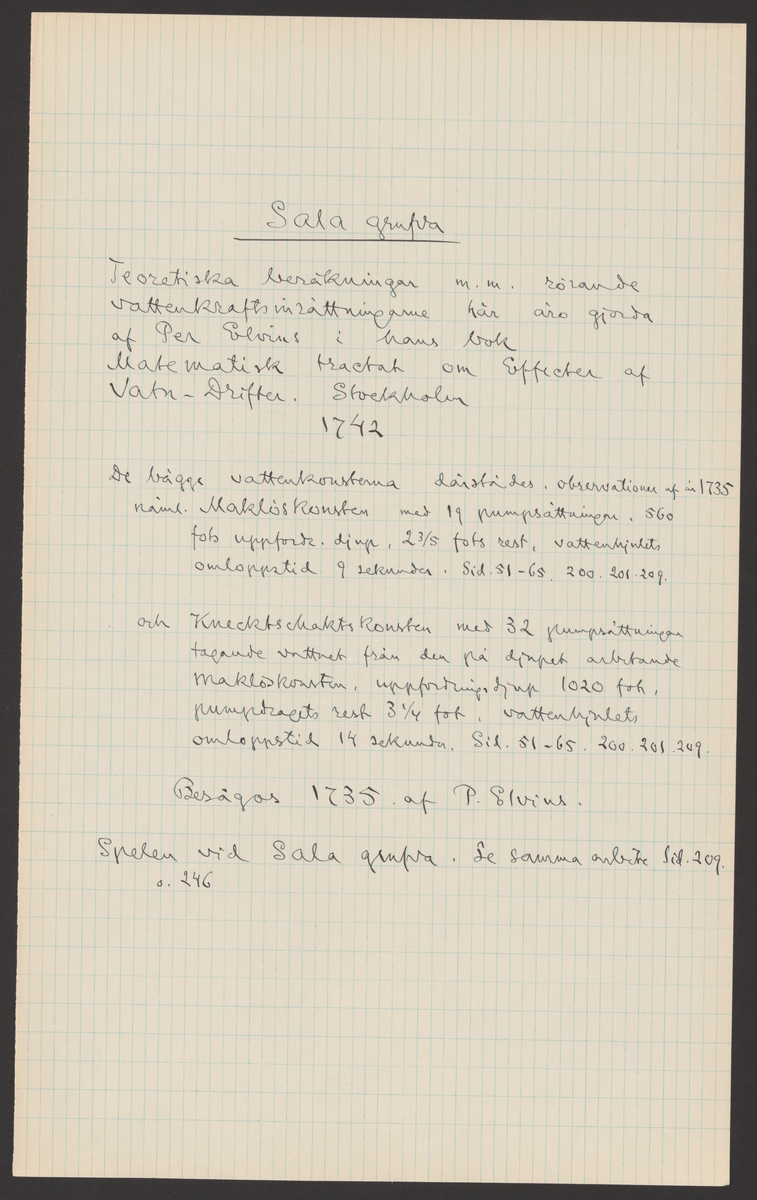 Sala grufva
Teoretiska beräkningar m.m. rörande
vattenkraftsinrättningarne här äro gjorda
af Per Elvius i hans bok
Matematisk tractat om Effecter af
Vatn-Drifter. Stockholm
1742
De bägge vattenkonsterna därstädes. observationer af år 1735
näml. Maklöskonsten med 19 pumpsättningar, 560
fots uppfordr. djup, 2 3/5 fots rest, vattenhjulets
omloppstid 9 sekunder. Sid. 51-65. 200. 201. 209.
och Knecktschaktskonsten med 32 pumpsättningar
tagande vattnet från den på djupet arbetande
Maklöskonsten, uppfordringsdjup 1020 fot,
pumpdragets rest 3 1/4 fot, vattenhjulets
omloppstid 14 sekunder. Sid. 51-65. 200. 201. 209.
Besågos 1735 af P. Elvius.
Spelen vid Sala grufva. Se samma arbete Sid. 209.
o. 246